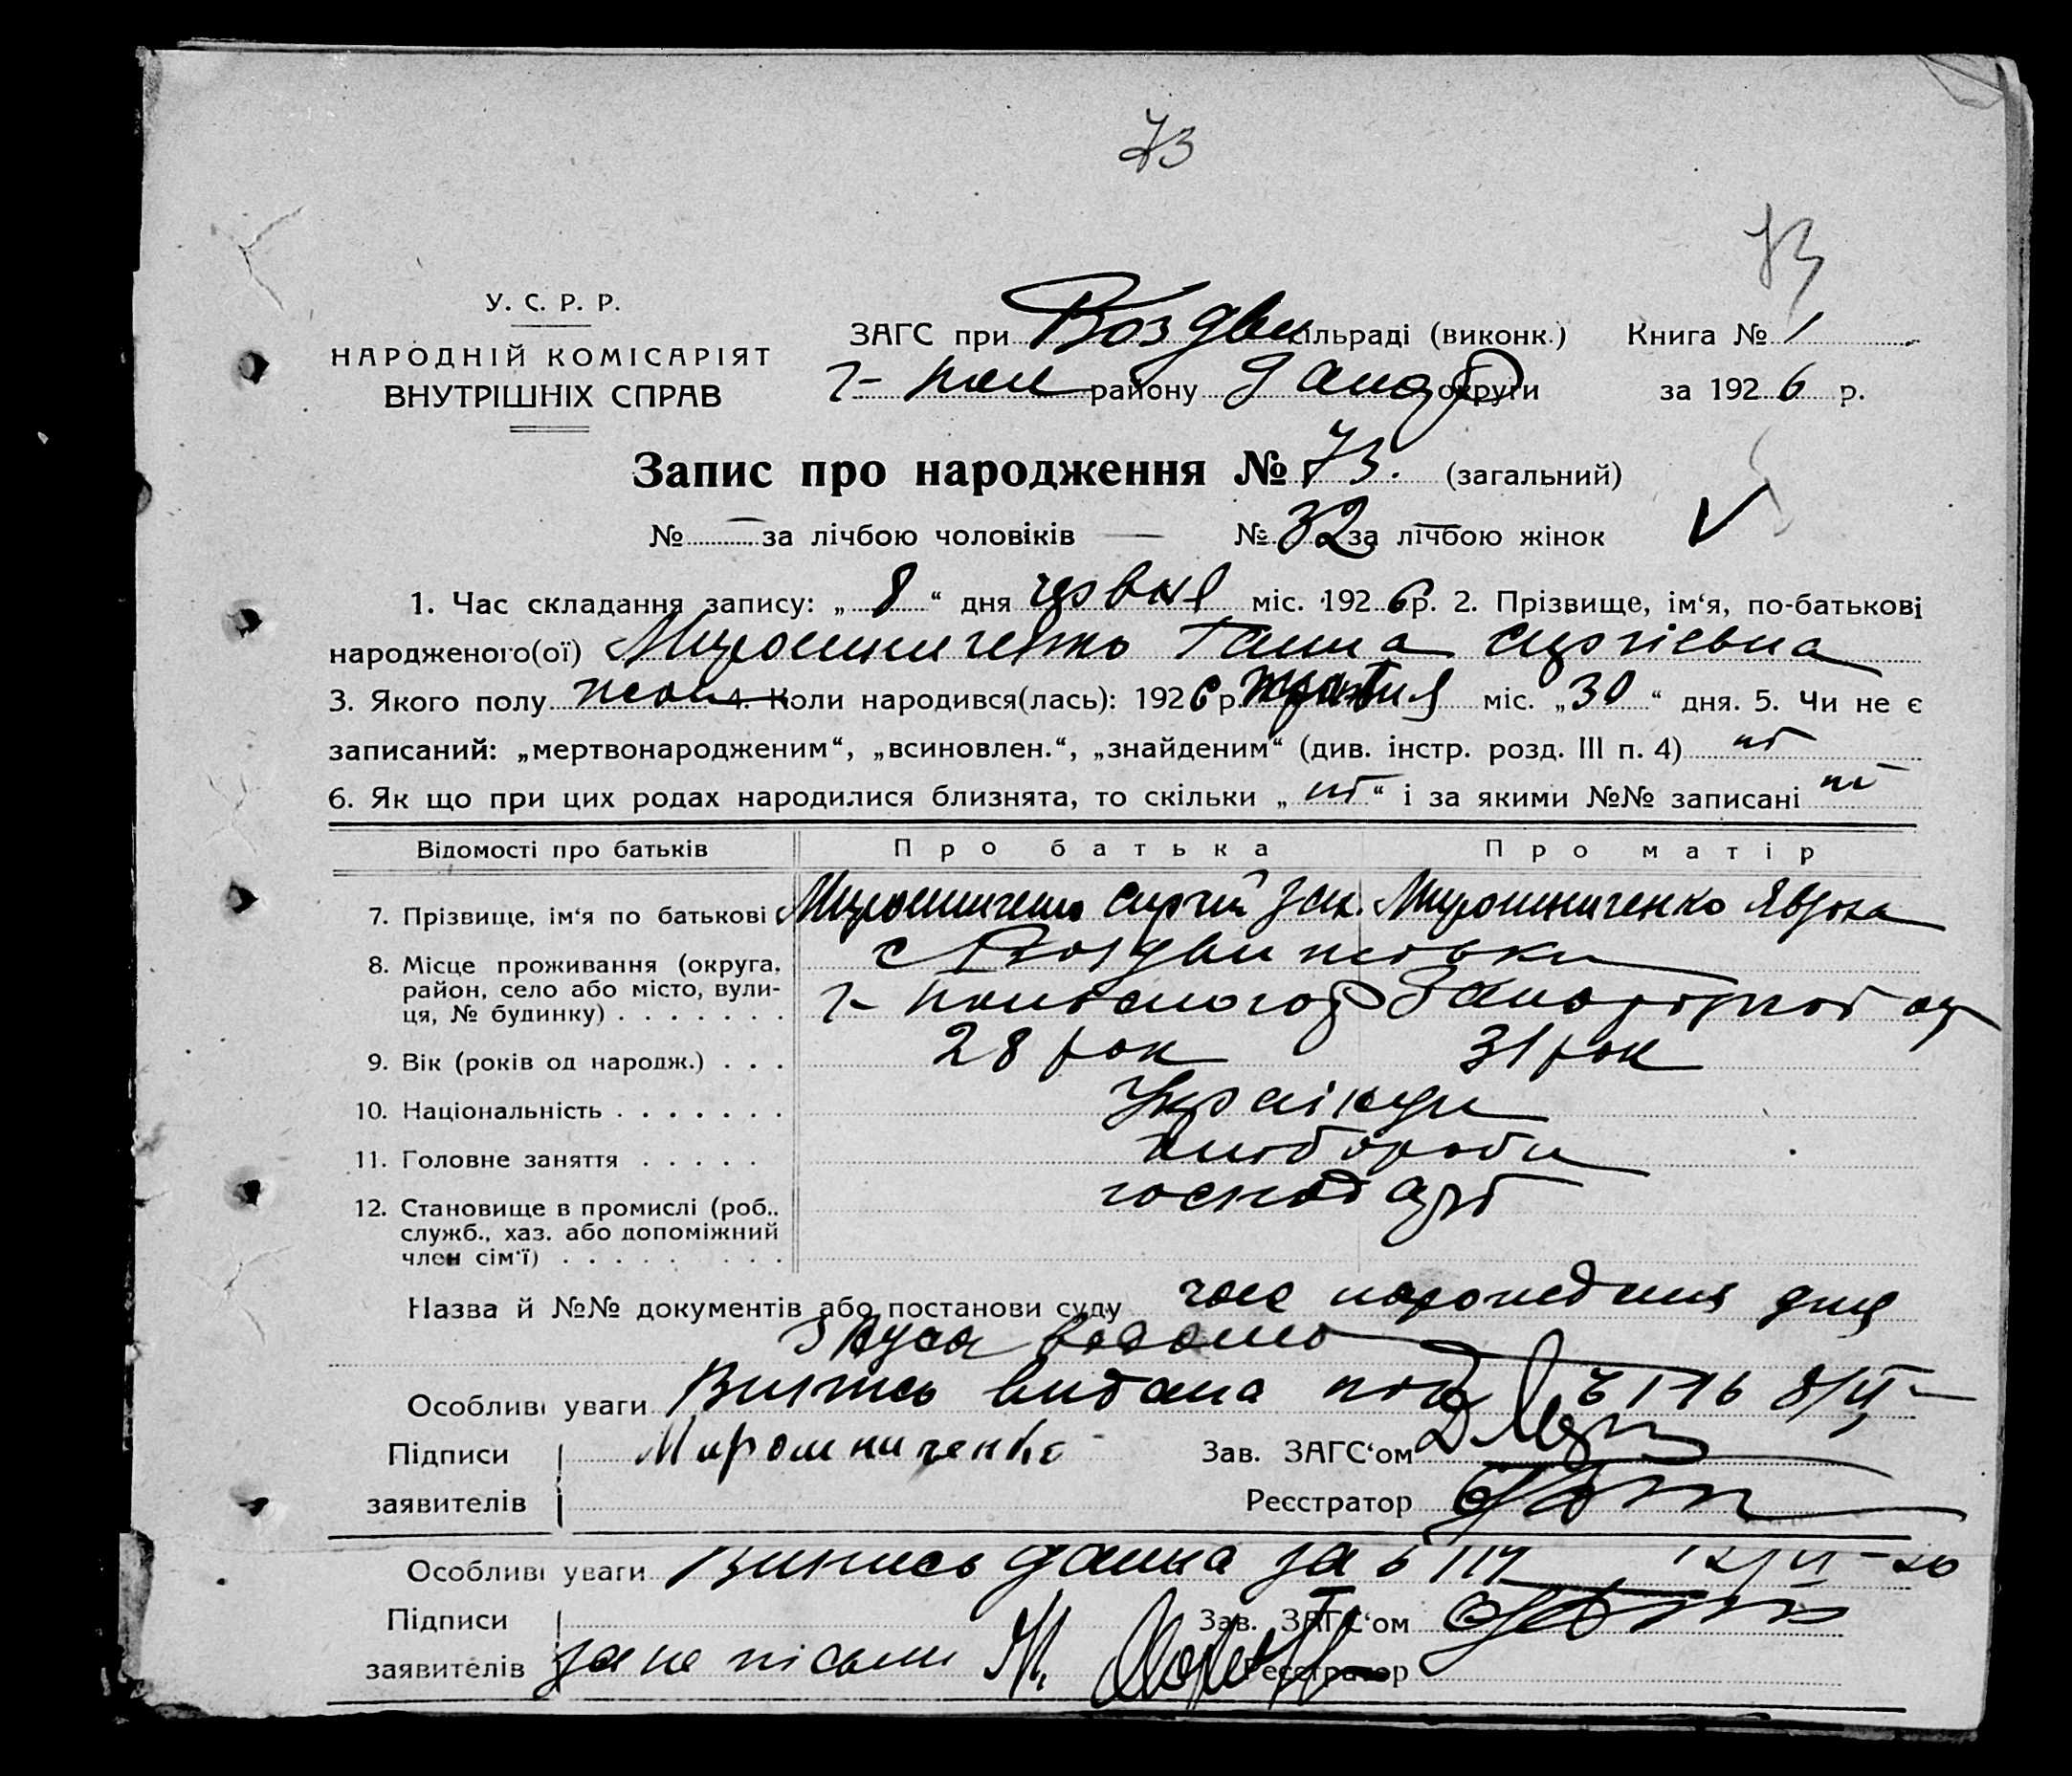 73
73
У. С. Р. Р.
НАРОДНІЙ КОМІСАРІЯТ
ВНУТРІШНІХ СПРАВ
ЗАГС при Воздви сільраді (виконк.) Книга № 1
Г- пол району Запор округи за 1926 р.
Запис про народження № 73. (загальний)
№ – за лічбою чоловіків — № 32 за лічбою жінок V
1. Час складання запису: „ 8 “ дня червня міс. 1926 р. 2. Прізвище, ім‘я, по-батькові
народженого(ої) Мирошниченко Ганна Сергіевна
3. Якого полу жон 4. Коли народився(лась): 1926 р. міс. „30“ дня. 5. Чи не є
записаний: „мертвонародженим“, „всиновлен.“, „знайденим“ (див. інстр. розд. III п. 4) ні
6. Як що при цих родах народилися близнята, то скільки „ ні “ і за якими №№ записані ні
Відомості про батьків Про батька Про матір
7. Прізвище, ім‘я по батькові Мирошниченко Сергій Зах. Мирошниченко Явдоха
8. Місце проживання (округа, с Воздвижовки
район, село або місто, вули-
ця, № будинку) . . . . . . . Г- польського р Запорізької ок
9. Вік (років од народж.) . . . 28 рок 31 рок
10. Національність . . . . . . . Українци
11. Головне заняття . . . . . хлібороби
12. Становище в промислі (роб., господарі
служб., хаз. або допоміжний
член сім‘ї) . . . . . . . .
Назва й №№ документів або постанови суду час народження дня
Особливі уваги Випись видана під
Підписи Мирошниченко Зав. ЗАГС‘ом
заявителів Реєстратор
Особливі уваги Випись данна за
Підписи Зав. ЗАГС‘ом
заявителів за не пісьми М. Реєстратор